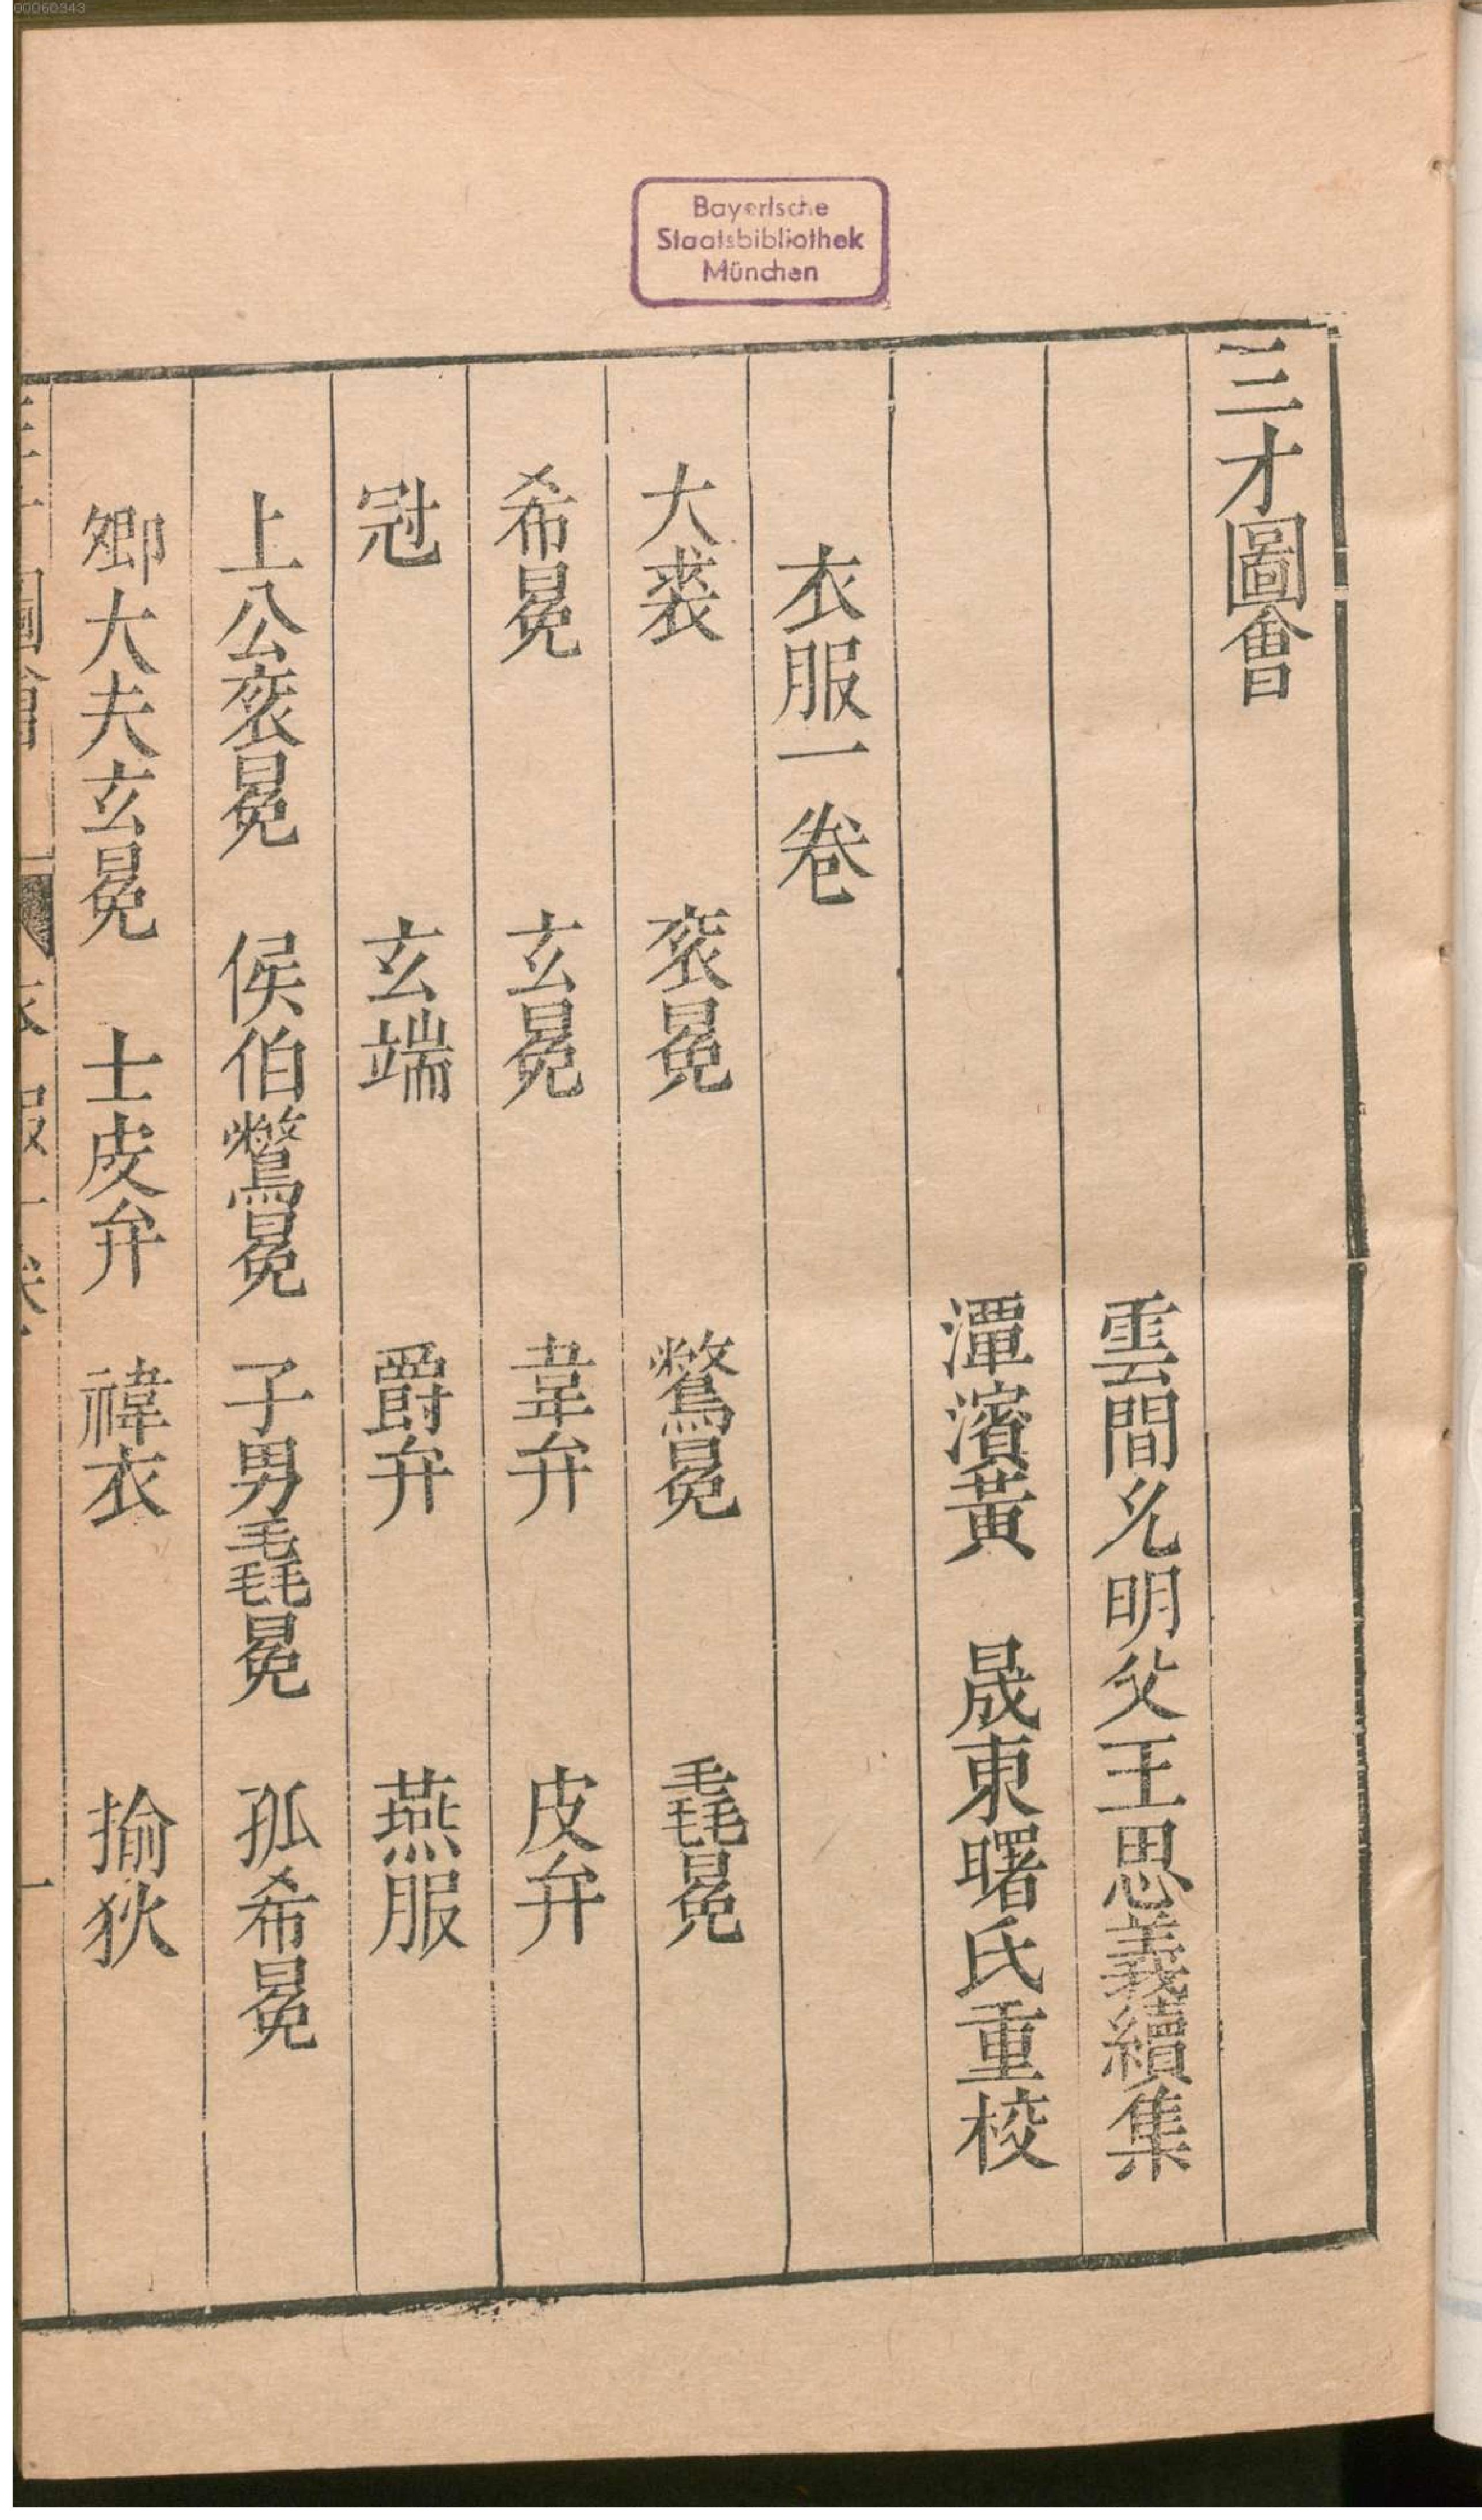 00060343
Bayerische
Staatsbibliothek
München
三才圖會
雲間允明父王思義續集
潭濱黃　晟東曙氏重校
衣服一卷
大裘　袞冕　鷩冕　毳冕
希冕　玄冕　韋弁　皮弁
冠　玄端　爵弁　燕服
上公袞冕　侯伯鷩冕　子男毳冕　孤希冕
卿大夫玄冕　士皮弁　褘衣　揄狄
三才圖會　衣服一卷　一